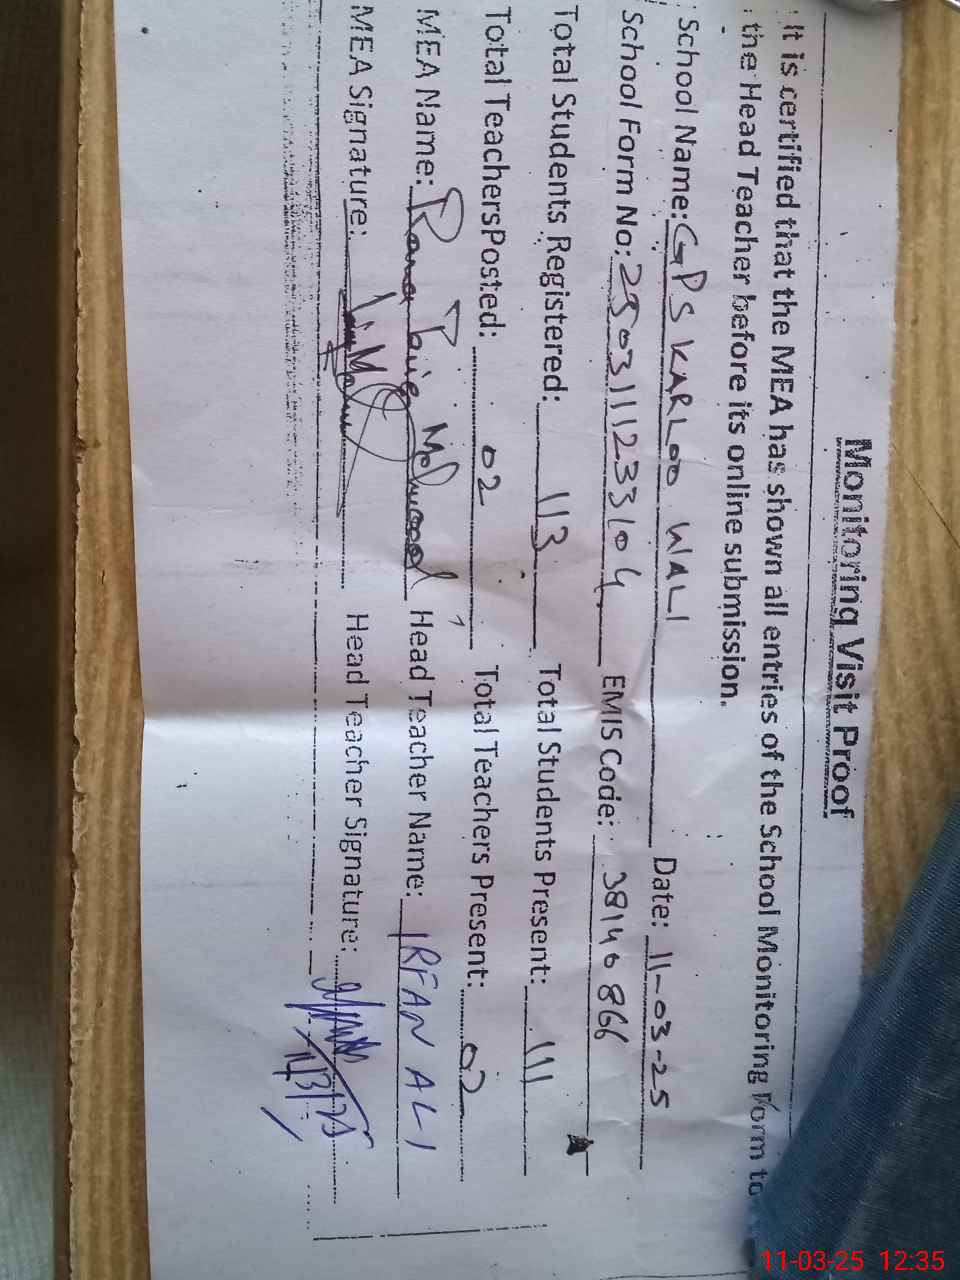 Monitoring Visit Proof
It is certified that the MEA has shown all entries of the School Monitoring Form to
the Head Teacher before its online submission.
School Name: GPS KARLOO WALI Date: 11-03-25
School Form No: 2503111233104 EMIS Code: 38140866
Total Students Registered: 113 Total Students Present: 111
Total Teachers Posted: 02 Total Teachers Present: 02
MEA Name: Rana Tariq Mehmood Head Teacher Name: IRFAN ALI
MEA Signature: Head Teacher Signature:
11/3/25
11-03-25 12:35